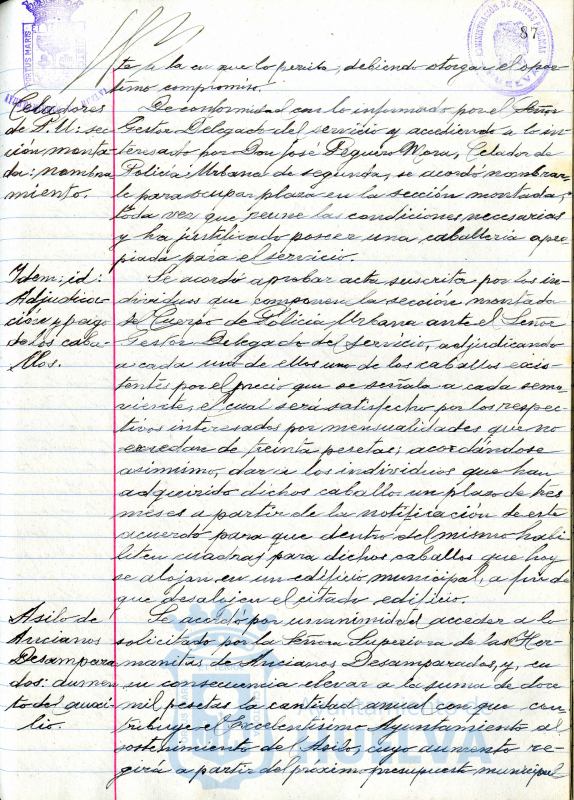 87
te a la en que lo perciba, debiendo otorgar el opor-
tuno compromiso.
Celadores
de P. U: sec
ción monta-
da: nombra
miento.
De conformidad con lo informado por el Señor
Gestor Delegado del servicio y accediendo a lo in-
teresado por Don José Peguero Mora, Celador de
Policía Urbana de segunda, se acordó nombrar-
le para ocupar plaza en la sección montada,
toda vez que reune las condiciones necesarias
y ha justificado poseer una caballería apro-
piada para el servicio.
Idem: id:
Adjudica-
ción y pago
de los caba-
llos.
Se acordó aprobar acta suscrita por los in-
dividuos que componen la sección montada
del Cuerpo de Policía Urbana ante el Señor
Gestor Delegado del servicio, adjudicando
a cada uno de ellos uno de los caballos exis-
tentes por el precio que se señala a cada semo-
viente, el cual será satisfecho por los respec-
tivos interesados por mensualidades que no
excedan de treinta pesetas; acordándose
asimismo, dar a los individuos que han
adquirido dichos caballos un plazo de tres
meses a partir de la notificación de este
acuerdo para que dentro del mismo habi-
liten cuadras para dichos caballos que hoy
se alojan en un edificio municipal, a fin de
que desalojen el citado edificio.
Asilo de
Ancianos
Desampara
dos: aumen
to del auxi-
lio.
Se acordó por unanimidad acceder a lo
solicitado por la Señora Superiora de las Her-
manitas de Ancianos Desamparados, y, en
su consecuencia elevar a la suma de doce
mil pesetas la cantidad anual con que con-
tribuye el Excelentísimo Ayuntamiento al
sostenimiento del Asilo, cuyo aumento re-
girá a partir del próximo presupuesto municipal